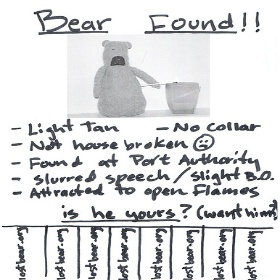 Bear Found!!
- Light Tan - No Collar
- Not house broken ☹
- Found at Port Authority
- Slurred speech / Slight B.O.
- Attracted to open Flames
is he yours? (want him?)
lostbear.org
lostbear.org
lostbear.org
lostbear.org
lostbear.org
lostbear.org
lostbear.org
lostbear.org